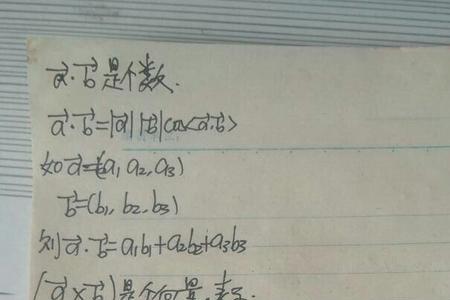 a⃗·b⃗是个数.
a⃗·b⃗=|a⃗||b⃗|cos<a⃗·b⃗>
如a⃗=(a₁,a₂,a₃)
b⃗=(b₁,b₂,b₃)
则a⃗·b⃗=a₁b₁+a₂b₂+a₃b₃
(a⃗×b⃗)是个向量,表示.